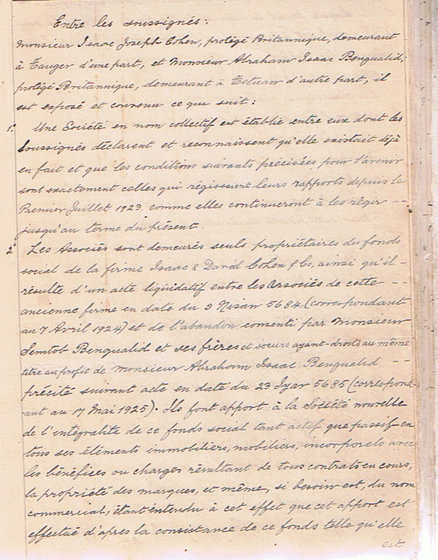 Entre les soussignés:
Monsieur Isaac Joseph Cohen, protégé Britannique, demeurant
à Tanger d'une part, et Monsieur Abraham Isaac Benqualid,
protégé Britannique, demeurant à Tetuan d'autre part, il
est exposé et convenu ce qui suit:
1. Une Société en nom collectif est établie entre eux dont les
soussignés déclarent et reconnaissent qu'elle existait déjà
en fait et que les conditions suivants précisées pour l'avenir
sont exactement celles qui régissent leurs rapports depuis le
Premier Juillet 1923, comme elles continueront à les régir -
jusqu'au terme du présent.
2. Les Associés sont demeurés seuls propriétaires du fonds
social de la firme Isaac & David Cohen & Co, ainsi qu'il
résulte d'un acte liquidatif entre les Associés de cette -
ancienne firme en date du 3 Nisan 5684 (correspondant
au 7 Avril 1924) et de l'abandon consenti par Monsieur
Semtob Benqualid et ses frères et soeurs ayant-droits au même
titre au profit de Monsieur Abraham Isaac Benqualid -
précité suivant acte en date du 23 Iyar 5685 (correspond
ant au 17 Mai 1925). Ils font apport à la Société nouvelle
de l'intégralité de ce fonds social tant actif que passif en
tous ses éléments immobiliers, mobiliers, incorporels avec
les bénéfices ou charges résultant de tous contrats en cours,
la propriété des marques, et même, si besoin est, du nom
commercial, étant entendu à cet effet que cet apport est
effectué d'après la consistance de ce fonds telle qu'elle
est